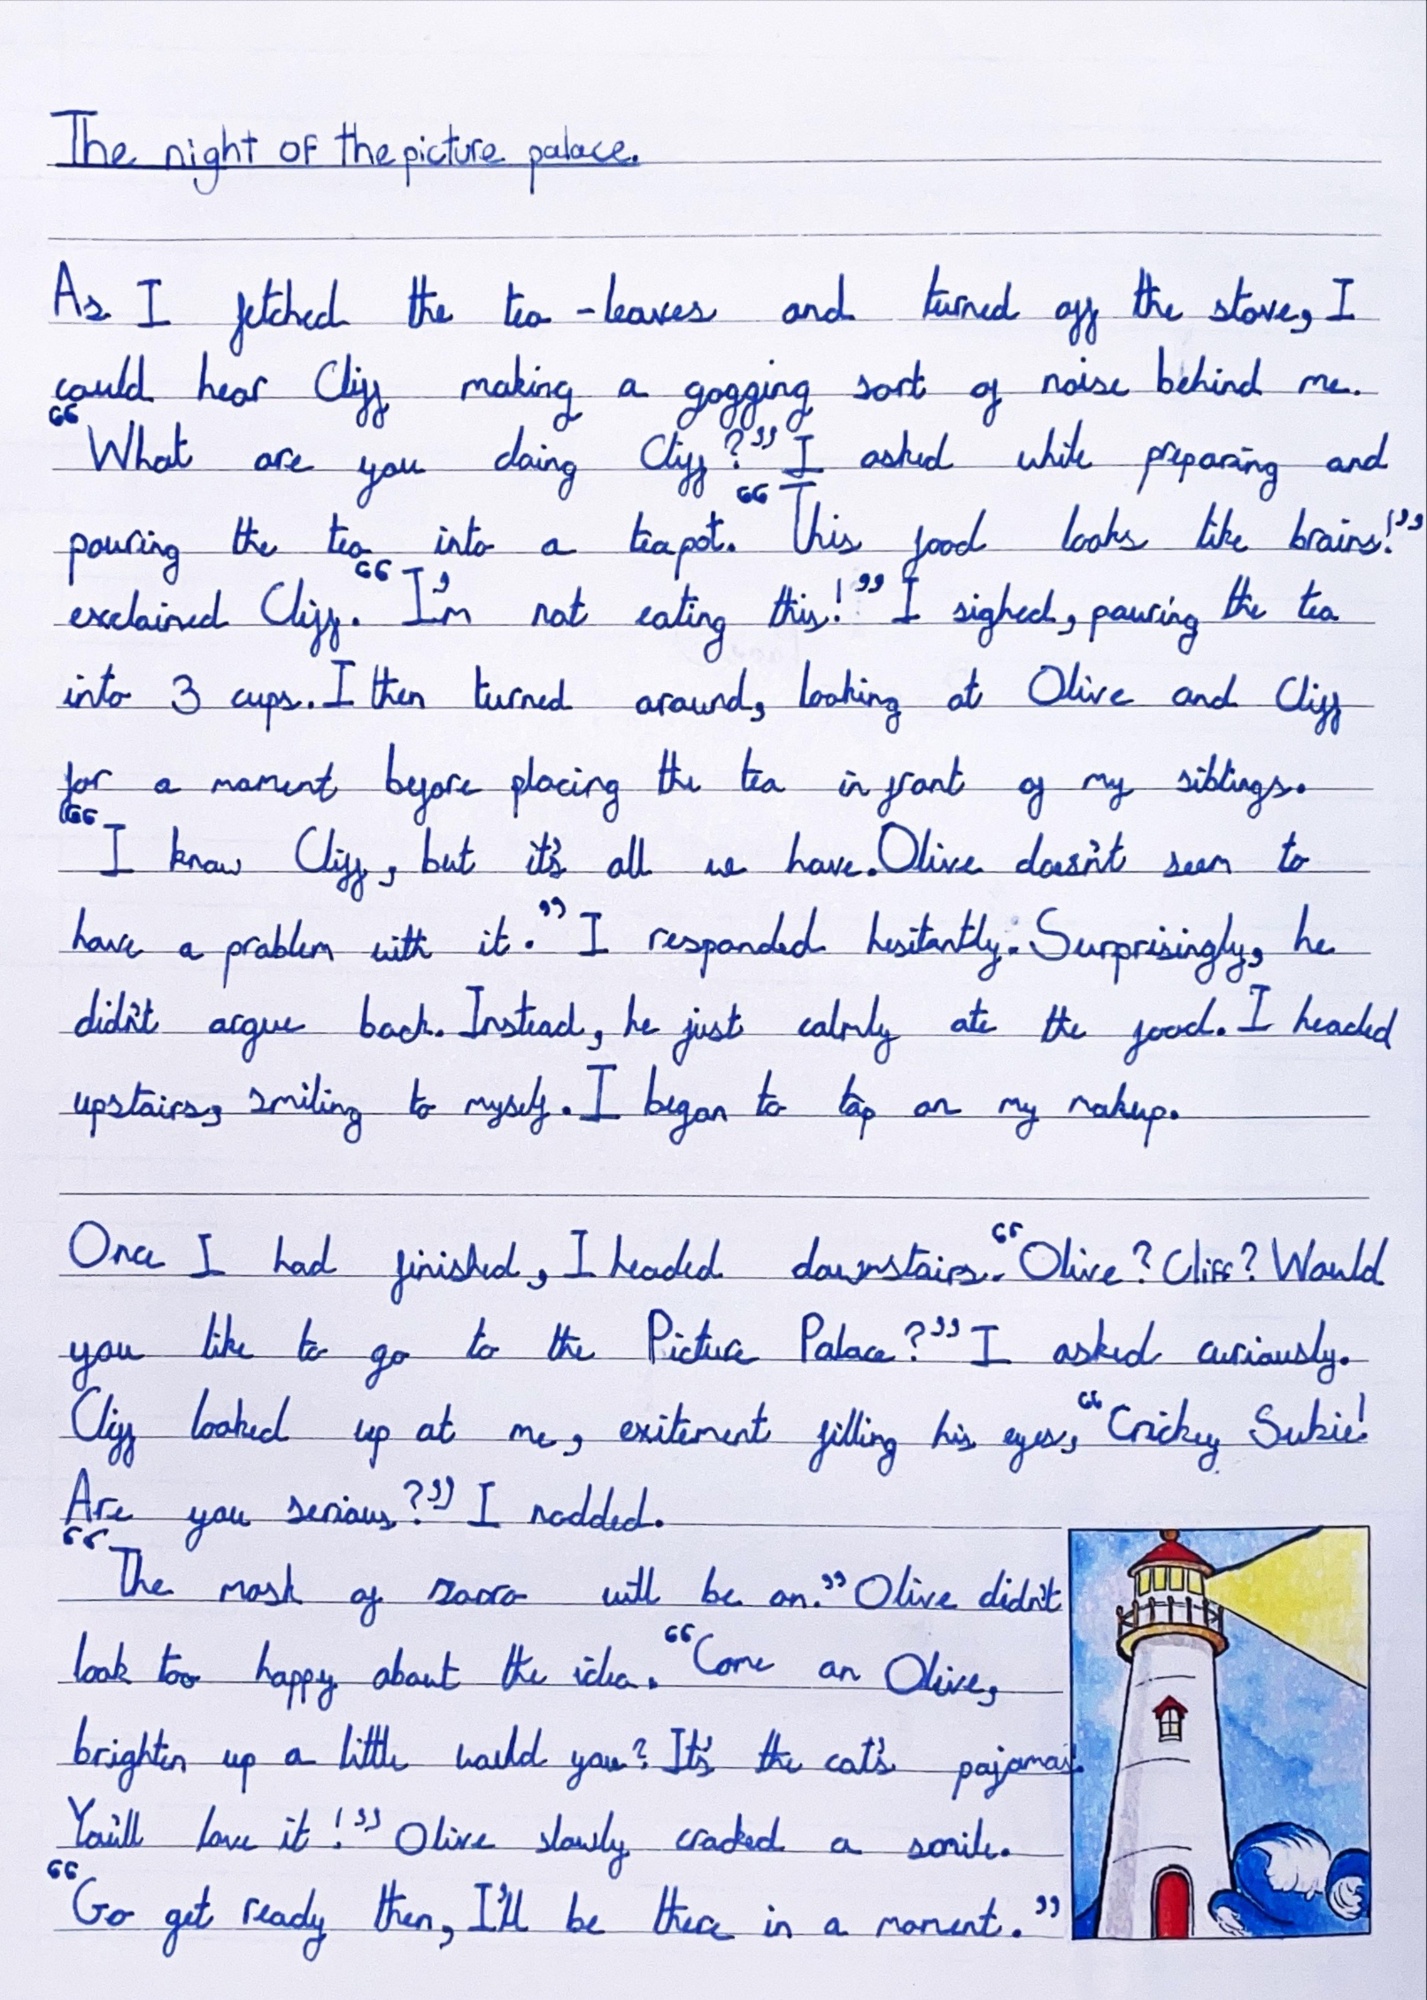 The night of the picture palace.
As I fetched the tea-leaves and turned off the stove, I
could hear Cliff making a gogging sort of noise behind me.
“What are you doing Cliff?” I asked while preparing and
pouring the tea into a teapot. “This food looks like brains!”
exclaimed Cliff. “I'm not eating this!” I sighed, pouring the tea
into 3 cups. I then turned around, looking at Olive and Cliff
for a moment before placing the tea in front of my siblings.
“I know Cliff, but it's all we have. Olive doesn't seem to
have a problem with it.” I responded hesitantly. Surprisingly, he
didn't argue back. Instead, he just calmly ate the food. I headed
upstairs, smiling to myself. I began to tap on my makup.
Once I had finished, I headed downstairs. “Olive? Cliff? Would
you like to go to the Picture Palace?” I asked curiously.
Cliff looked up at me, exitement filling his eyes, “Crickey Sukie!
Are you serious?” I nodded.
“The mask of zorro will be on.” Olive didn't
look too happy about the idea. “Come on Olive,
brighten up a little would you? It's the cat's pajamas!
You'll love it!” Olive slowly cracked a smile.
“Go get ready then, I'll be there in a moment.”